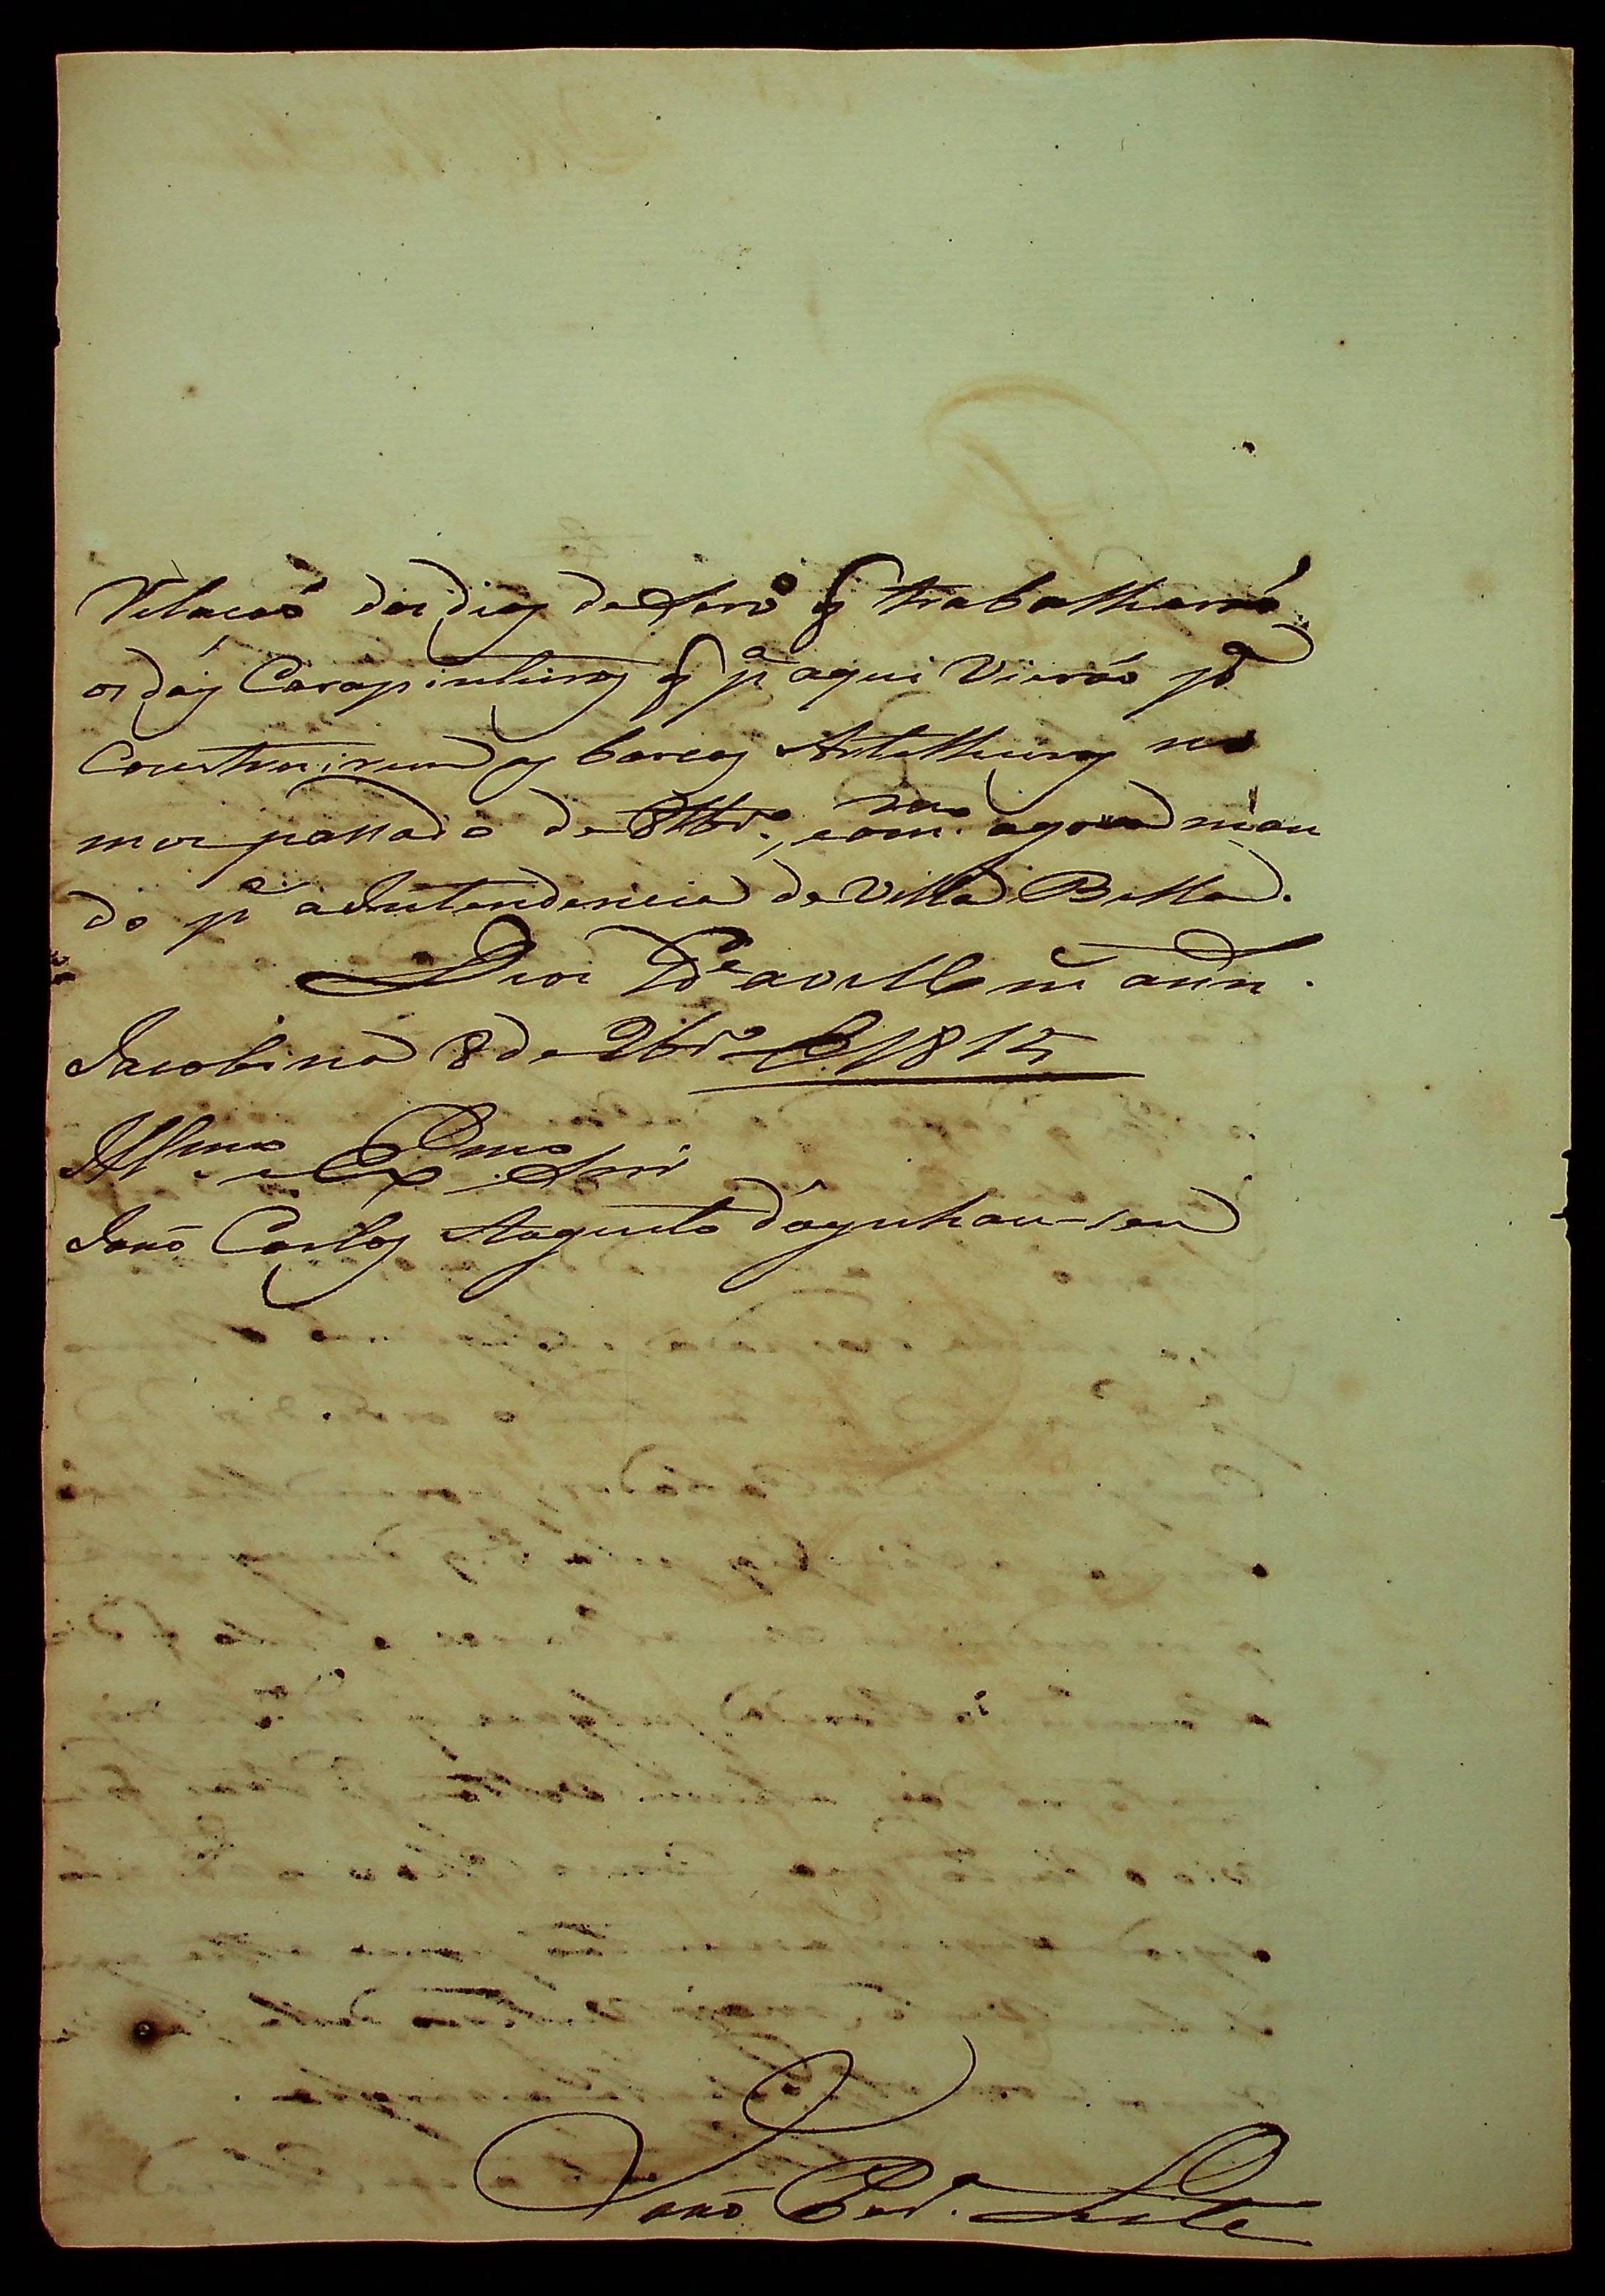 Relacaõ dos dias de Serv.º q̃ trabalharaõ
os dáz Carapinteiros q̃ p.ª aqui Vieraõ p.ª
Construirem os barcos Artelheiros no
mes passado de 8br.º, com.º agora man
do p.ª a Intendencia de Villa Bella.
Deos G.e a V. Ex.ª m.s ann.s
Jacobina 8 de 9br.º de 1815
Ill.mo e Ex.mo Snr̃
Joaõ Carlos Augusto d'Oeynhausen
Joaõ Per.ª Leite